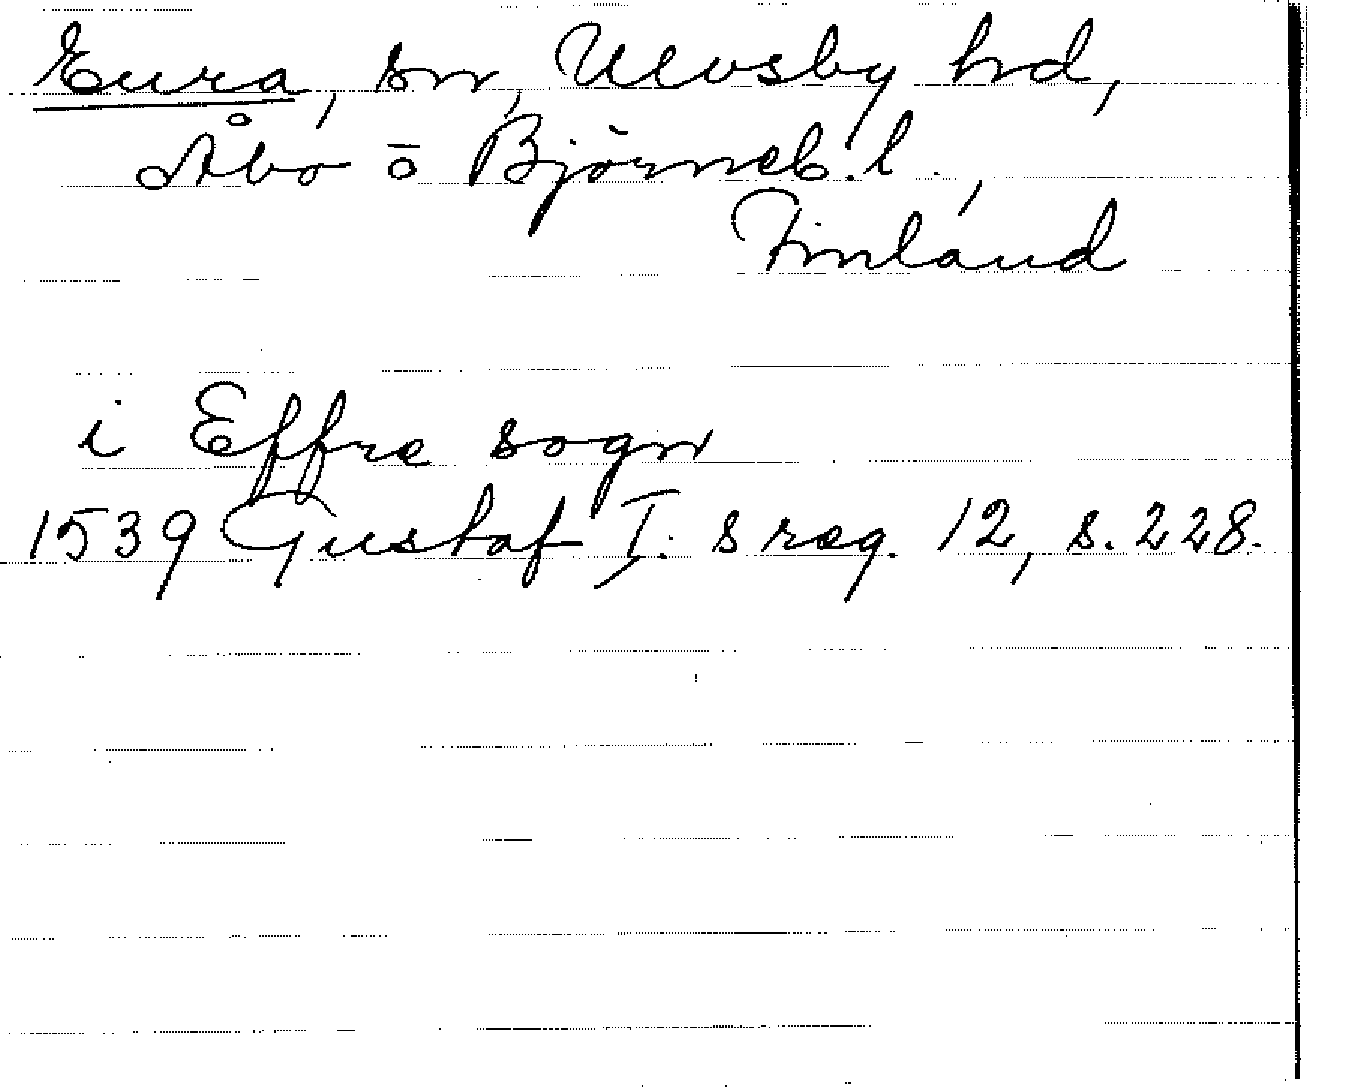 Eura, sn, Ulvsby hrd,
Åbo o Björneb. l.,
Finland
i Effre sogn
1539 Gustaf I:s reg. 12, s. 228.